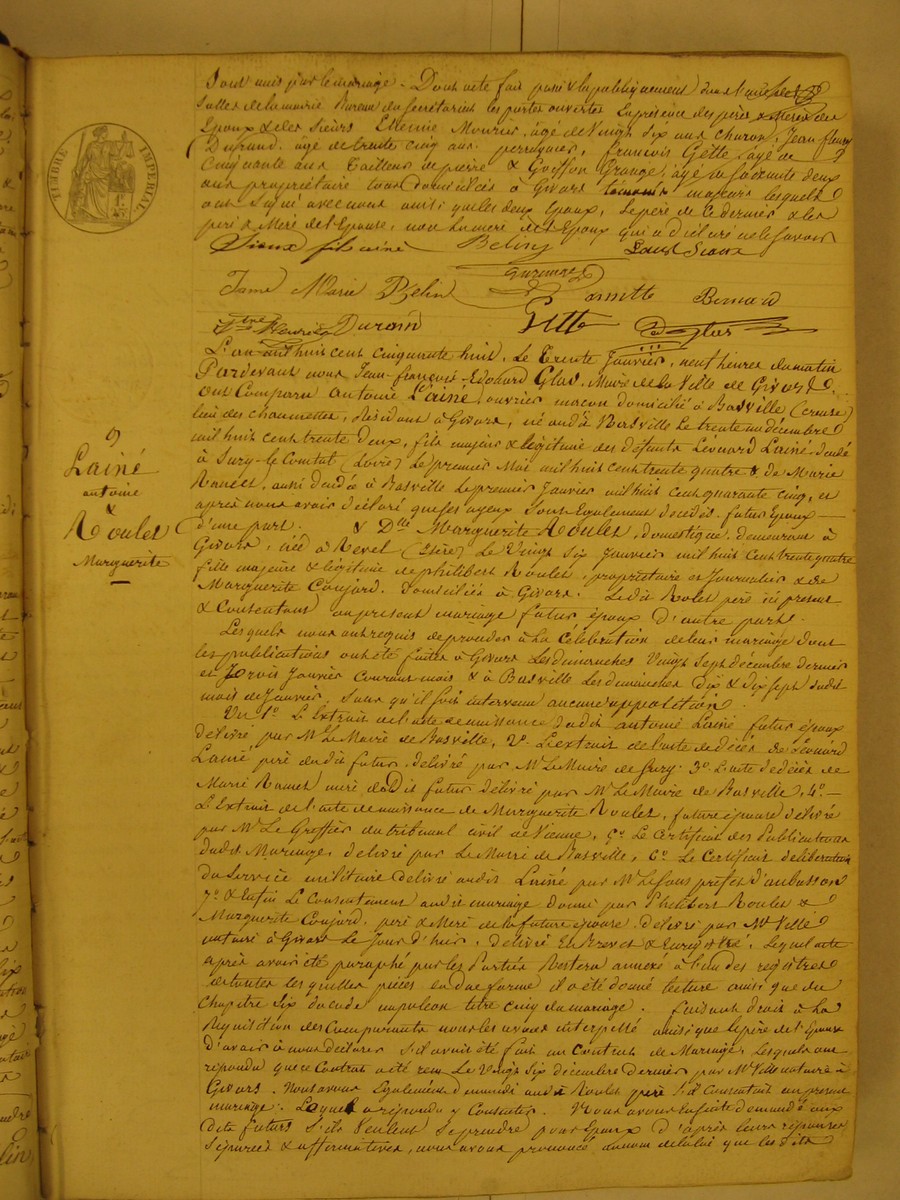 TIMBRE IMPERIAL
Sont unis par le mariage. Dont acte fait passé & lu publiquement dans l'une des
Salles de la mairie Bureau du Secrétariat les portes ouvertes En présence des pères & Mères des
Epoux & des Sieurs Etienne Mourier, agé de Vingt Six ans charon, Jean fleury
Durand, âgé de trente cinq ans, perruquier, françois Gette, agé de
Cinquante ans Tailleur de pierre & Goiffon Grange, agé de soixante deux
ans propriétaire tous domiciliés à Givors majeurs lesquels
ont signé avec nous ainsi que les deux Epoux, le père de ce dernier & les
père & Mère de l'Epouse, non la mère de l'Epoux qui a déclaré ne le savoir
fils ainé Belin
Grange
Marie Belin Bernard
Durand Gette Ed Glas
L'an mil huit cent cinquante huit, Le Trente Janvier, neuf heures du matin
Pardevant nous Jean-françois-Edouard Glas, Maire de la Ville de Givors,
ont Comparu antoine Lainé, ouvrier maçon domicilié à Basville (creuse)
lieu des chaumettes, résidant à Givors, né audit Basville le trente un décembre
mil huit cent trente deux, fils majeur & légitime des défunts Léonard Lainé décédé
à Sury-le-Comtat (Loire) le premier Mai mil huit cent trente quatre & de Marie
aussi décédée à Basville le premier Janvier mil huit cent quarante cinq, et
après nous avoir déclaré que ses ayeux sont Egalement décédés, futur Epoux
d'une part. & Dlle Marguerite Roulet, domestique, demeurant à
Givors, née à Revel (Isère) Le Vingt Six Janvier mil huit cent trente quatre
fille majeure & légitime de philibert Roulet, propriétaire et Journalier & de
Marguerite Coujard. Domiciliés à Givors. Ledit Roulet père ici présent
& Consentant au présent mariage futur époux d'autre part.
Lesquels nous ont requis de procéder à la Célébration de leur mariage dont
les publications ont été faites à Givors Les dimanches Vingt Sept décembre dernier
et Trois Janvier Courant mois & à Basville Les dimanches Dix & Dix Sept dudit
mois de Janvier, sans qu'il soit intervenu aucune opposition.
Vu 1o. L'Extrait de l'acte de naissance dudit antoine Lainé futur époux
délivré par Mr Le Maire de Basville, 2o. L'extrait de l'acte de décès de Léonard
Lainé père dudit futur, délivré par Mr Le Maire de Sury. 3o. L'acte de décès de
Marie mère dudit futur délivré par Mr Le Maire de Basville, 4o.
L'Extrait de l'acte de naissance de Marguerite Roulet, future épouse délivré
par Mr Le Greffier du tribunal civil de Vienne, 5o Le Certificat des Publications
dudit Mariage, délivré par Le Maire de Basville, 6o Le Certificat de libération
du Service militaire délivré audit Lainé par Mr Le Sous préfet d'aubusson
7o & Enfin Le Consentement audit mariage donné par Philibert Roulet &
Marguerite Coujard, père & Mère de la future épouse, délivré par Me Ville
notaire à Givors Le Jour d'hier, délivré En Brevet & Enregistré, Lequel acte
après avoir été paraphé par les Parties Restera annexé à l'un des registres
de toutes lesquelles pièces en due forme il a été donné lecture ainsi que du
Chapitre Six du code napoléon titre cinq du mariage. faisant droit à la
Réquisition des Comparants nous les avons interpellé ainsi que le père de l'Epoux
d'avoir à nous déclarer s'il avait été fait un Contrat de Mariage, Lesquels ont
répondu que ce Contrat a été reçu Le Vingt Six décembre dernier par Me Ville notaire à
Givors. Nous avons Egalement demandé audit Roulet père s'il Consentait au présent
mariage: Lequel a répondu y Consentir. Nous avons Ensuite demandé aux
dits futurs s'ils Veulent se prendre pour Epoux & d'après leurs réponses
séparées & affirmatives, nous avons prononcé au nom de la loi que les dits
9
Lainé
antoine
&
Roulet
Marguerite